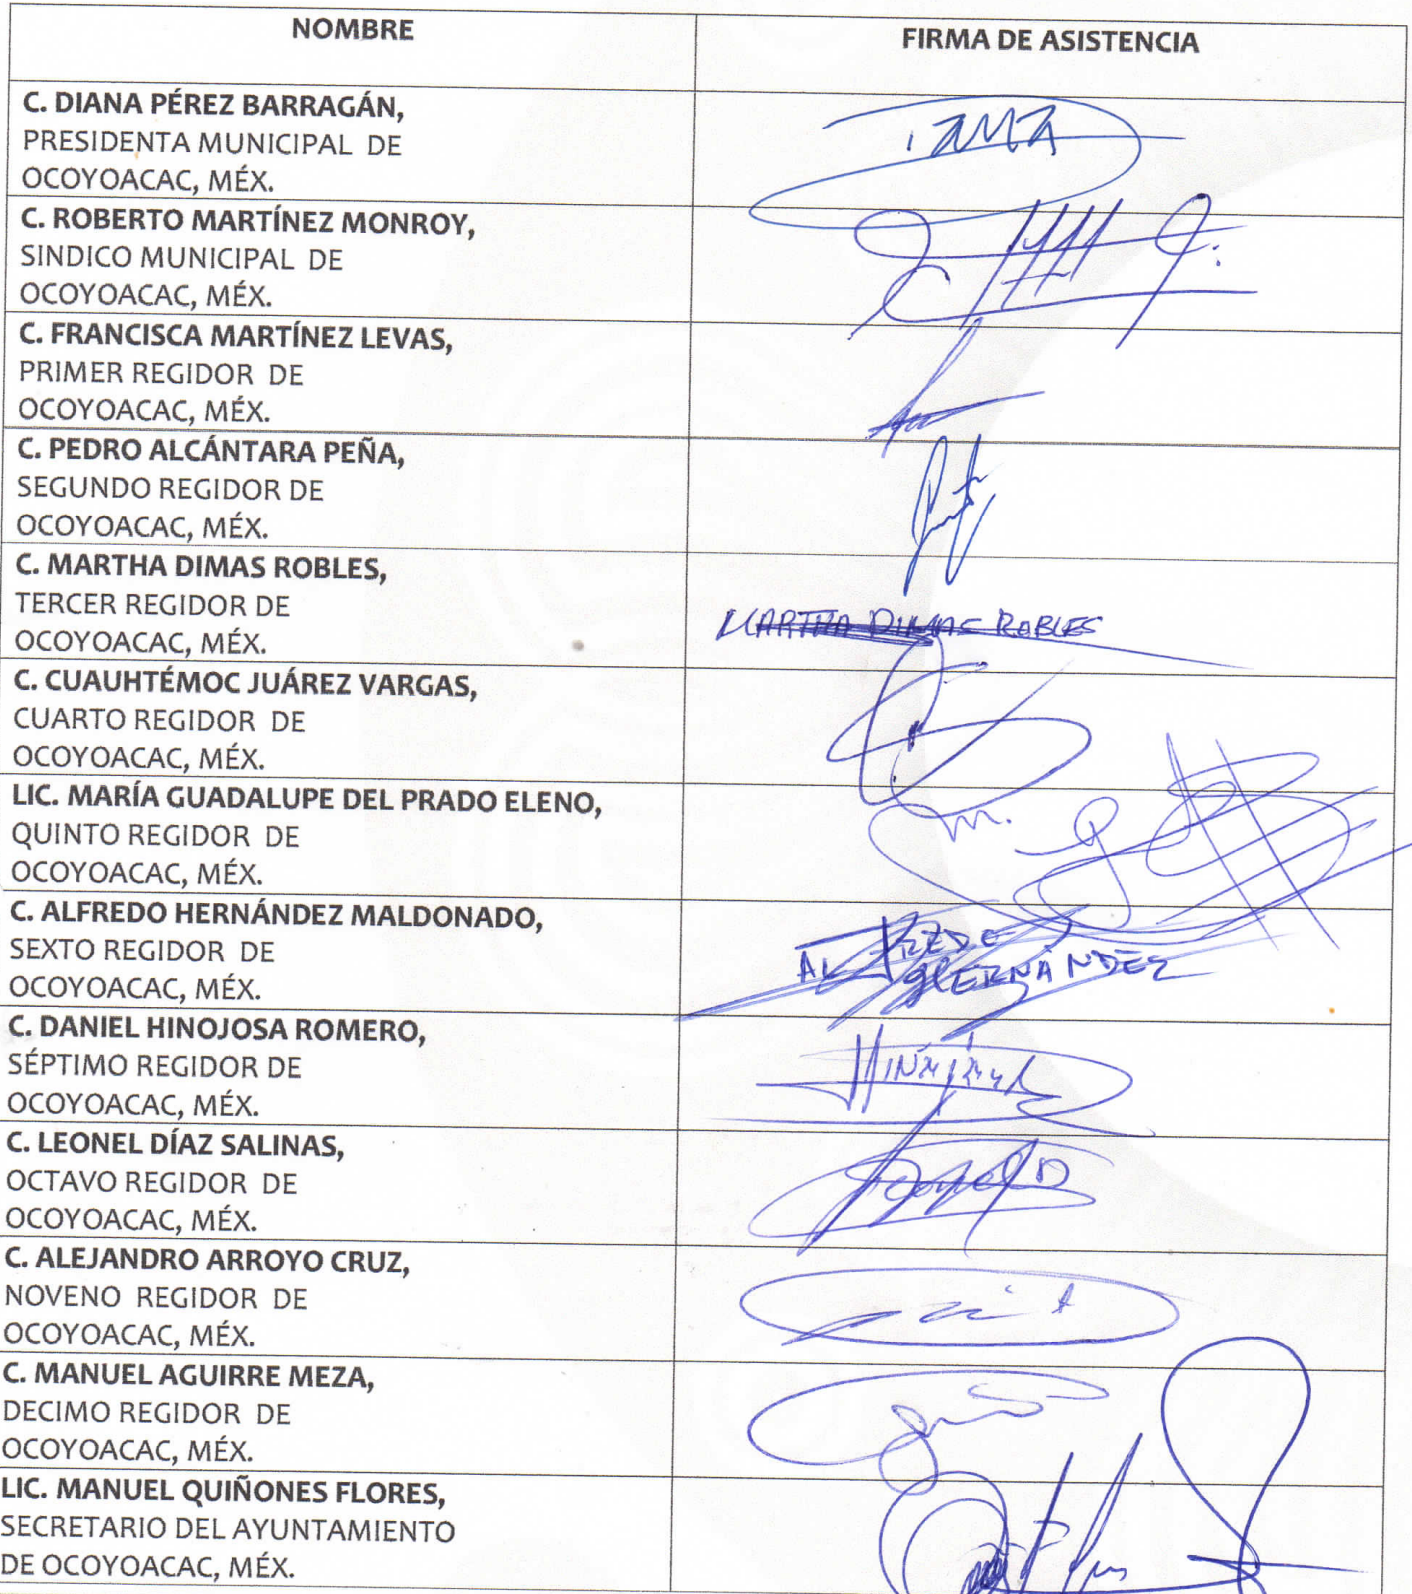 NOMBRE
FIRMA DE ASISTENCIA
C. DIANA PÉREZ BARRAGÁN,
PRESIDENTA MUNICIPAL DE
OCOYOACAC, MÉX.
C. ROBERTO MARTÍNEZ MONROY,
SINDICO MUNICIPAL DE
OCOYOACAC, MÉX.
C. FRANCISCA MARTÍNEZ LEVAS,
PRIMER REGIDOR DE
OCOYOACAC, MÉX.
C. PEDRO ALCÁNTARA PEÑA,
SEGUNDO REGIDOR DE
OCOYOACAC, MÉX.
C. MARTHA DIMAS ROBLES,
TERCER REGIDOR DE
OCOYOACAC, MÉX.
MARTHA DIMAS ROBLES
C. CUAUHTÉMOC JUÁREZ VARGAS,
CUARTO REGIDOR DE
OCOYOACAC, MÉX.
LIC. MARÍA GUADALUPE DEL PRADO ELENO,
QUINTO REGIDOR DE
OCOYOACAC, MÉX.
C. ALFREDO HERNÁNDEZ MALDONADO,
SEXTO REGIDOR DE
OCOYOACAC, MÉX.
ALFREDO
HERNÁNDEZ
C. DANIEL HINOJOSA ROMERO,
SÉPTIMO REGIDOR DE
OCOYOACAC, MÉX.
C. LEONEL DÍAZ SALINAS,
OCTAVO REGIDOR DE
OCOYOACAC, MÉX.
C. ALEJANDRO ARROYO CRUZ,
NOVENO REGIDOR DE
OCOYOACAC, MÉX.
C. MANUEL AGUIRRE MEZA,
DECIMO REGIDOR DE
OCOYOACAC, MÉX.
LIC. MANUEL QUIÑONES FLORES,
SECRETARIO DEL AYUNTAMIENTO
DE OCOYOACAC, MÉX.